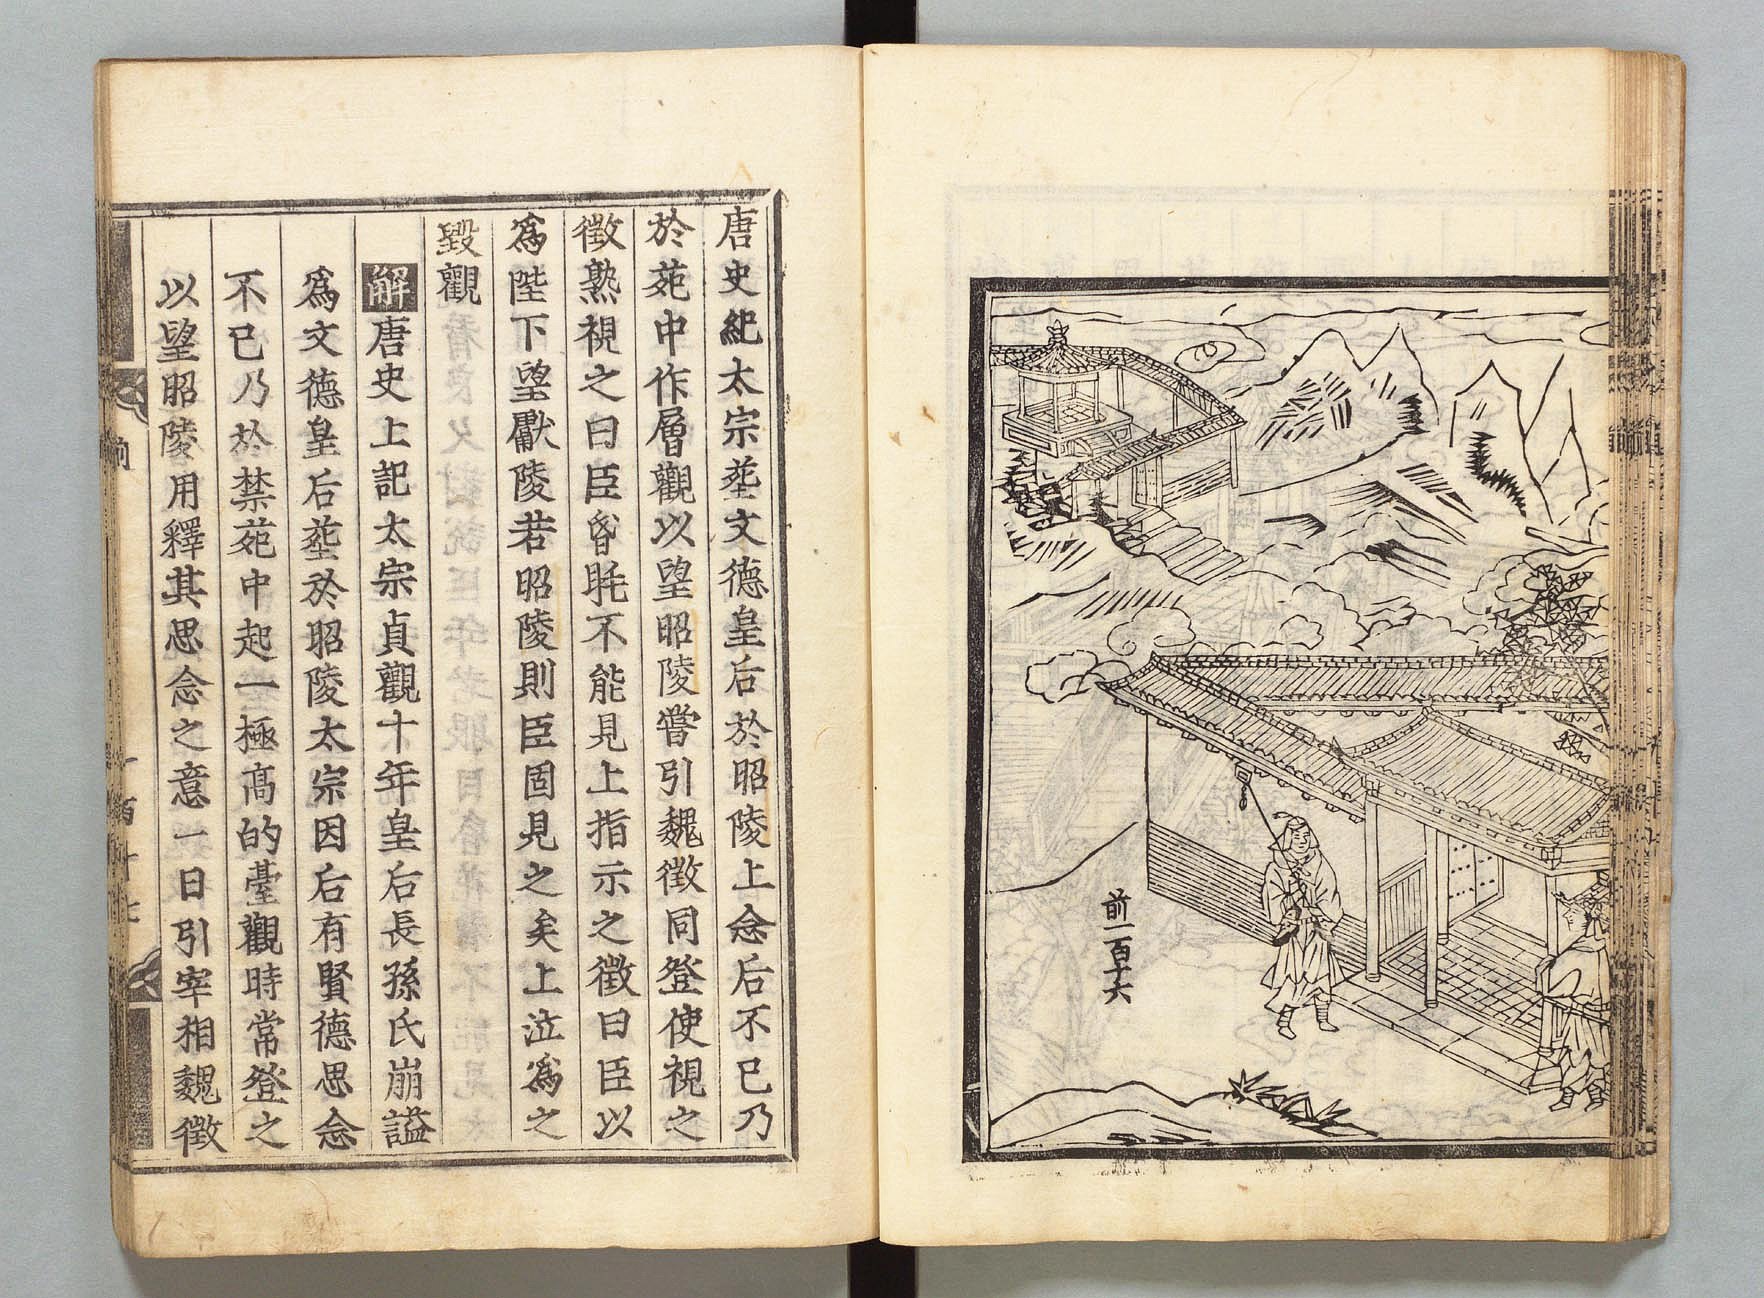 前一百十六
唐史紀太宗葬文德皇后於昭陵上念后不已乃
於苑中作層觀以望昭陵嘗引魏徵同登使視之
徵熟視之曰臣昏眊不能見上指示之徵曰臣以
爲陛下望獻陵若昭陵則臣固見之矣上泣爲之
毀觀
解唐史上記太宗貞觀十年皇后長孫氏崩謚
爲文德皇后葬於昭陵太宗因后有賢德思念
不已乃於禁苑中起一極高的臺觀時常登之
以望昭陵用釋其思念之意一日引宰相魏徵